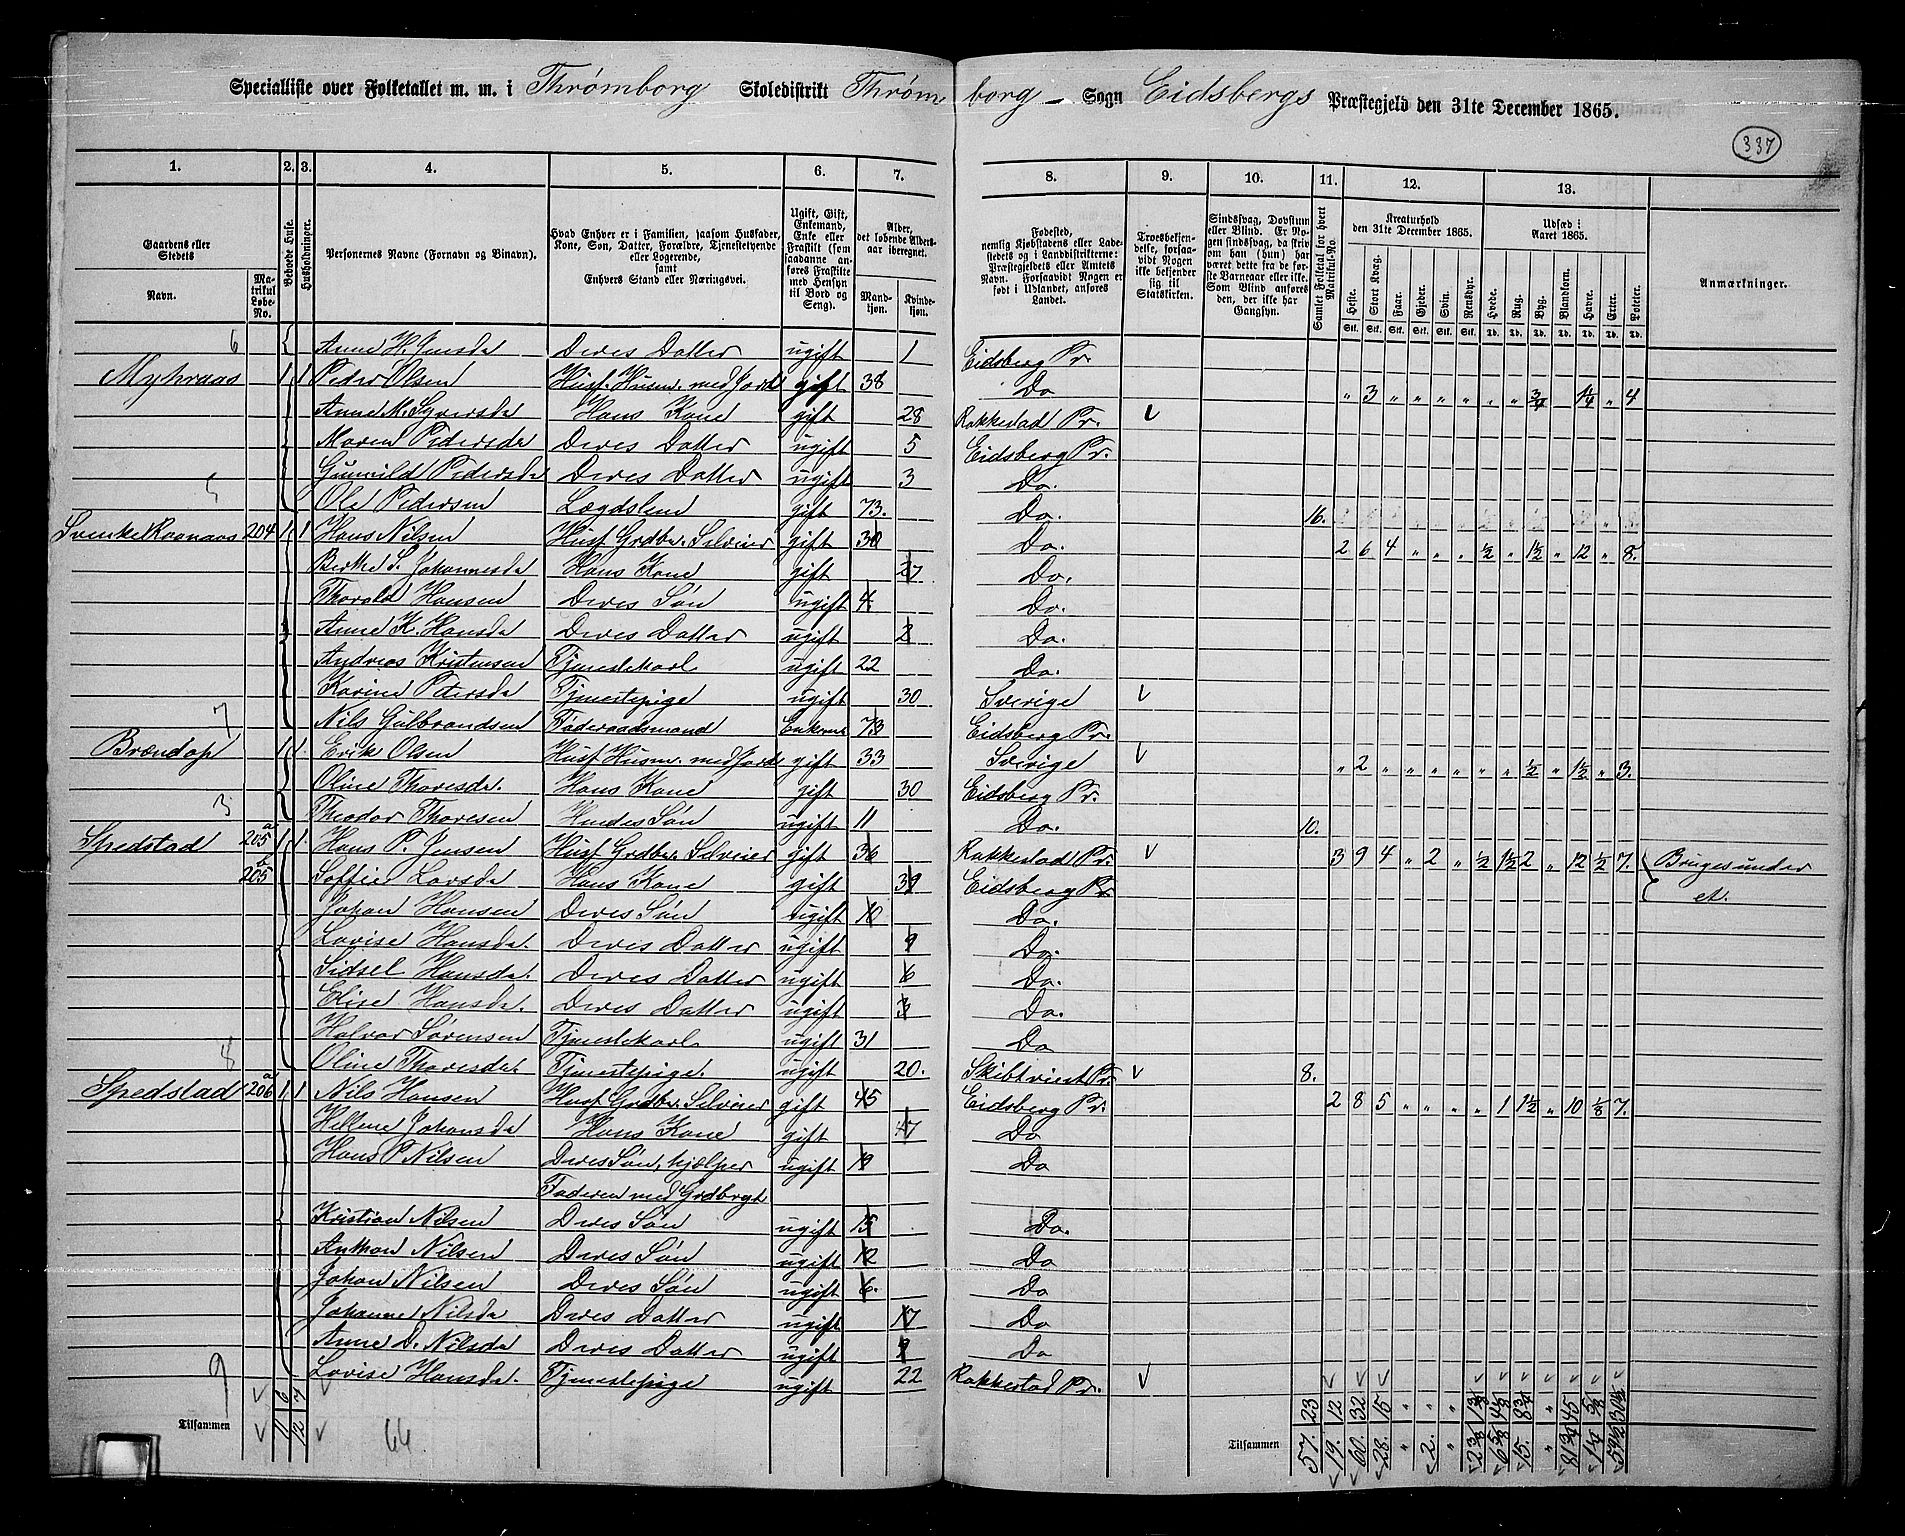 Specialliste over Folketallet m. m. i Thrømborg Skoledistrikt Thrømborg Sogn Eidsbergs Præstegjeld den 31te December 1865.
337
1. 2. 3. 4. 5. 6. 7. 8. 9. 10. 11. 12. 13.
Gaardens eller Stedets
Navn. Matrikul Løbe-No.
Beboede Huse.
Husholdninger.
Personernes Navne (Fornavn og Binavn).
Hvad Enhver er i Familien, saasom Husfader, Kone, Søn, Datter, Forældre, Tjenestetyende eller Logerende, samt Enhvers Stand eller Næringsvei.
Ugift, Gift, Enkemand, Enke eller Fraskilt (som saadanne anføres Fraskilte med Hensyn til Bord og Seng).
Alder, det løbende Aldersaar iberegnet.
Mandkjøn. Kvindekjøn.
Fødested, nemlig Kjøbstadens eller Ladestedets og i Landdistrikterne: Præstegjeldets eller Amtets Navn. Forsaavidt Nogen er født i Udlandet, anføres Landet.
Troesbekjendelse, forsaavidt Nogen ikke bekjender sig til Statskirken.
Sindssvag, Døvstum eller Blind. Er Nogen sindssvag, da skrives om han (hun) har været dette fra de første Barneaar eller ikke. Som Blind anføres den, der ikke har Gangsyn.
Samlet Folketal for hvert Matrikul-No.
Kreaturhold den 31te December 1865.
Heste. Stort Kvæg. Faar. Gjeder. Svin. Rensdyr.
Udsæd i Aaret 1865.
Hvede. Rug. Byg. Blandkorn. Havre. Erter. Poteter.
Anmærkninger.
6 Anne H. Jensda Deres Datter ugift 1 Eidsberg Pr.
Myhraas 1 1 Peder Olsen Husf. Husm. med Jord gift 38 Do " 3 " " " " " " 3/4 1 1/4 " 4
Anne M. Syversda Hans Kone gift 28 Rakkestad Pr.
Maren Pedersda Deres Datter ugift 5 Eidsberg Pr.
Gunnild Pedersda Deres Datter ugift 3 Do.
5 Ole Pedersen Lægdslem gift 73. Do. 16.
204 1 1 Hans Nilsen Husf Grdbr. Selveier gift 30 Do. 2 6 4 " " " 1/2 " 1 1/2 " 12 " 8.
Berthe S. Johannesda Hans Kone gift 27 Do.
Thorald Hansen Deres Søn ugift 4 Do.
Anne K. Hansda Deres Datter ugift 2 Do.
Andreas Kristensen Tjenestekarl ugift 22 Do.
Karine Petersda Tjenestepige ugift 30 Sverige
7 Nils Gulbrandsen Føderaadsmand Enkem. 73 Eidsberg Pr.
Brændop 1 1 Erik Olsen Husf Husm. med Jord gift 33 Sverige " 2 " " " " " " 1/2 " 1 1/2 " 3.
Oline Thoresda. Hans Kone gift 30 Eidsberg Pr.
3 Theodor Thoresen Hendes Søn ugift 11 Do. 10.
Spedstad 205 a 1 1 Hans P. Jensen Husf Grdbr. Selveier gift 36 Rakkestad Pr. 3 9 4 " 2 " 1/2 1 1/2 2 " 12 1/2 7. Bruges under
205 Soffie Larsda Hans Kone gift 31 Eidsberg Pr et.
Johan Hansen Deres Søn ugift 10 Do.
Lovise Hansda. Deres Datter ugift 9 Do.
Sidsel Hansda. Deres Datter ugift 6 Do.
Elise Hansda. Deres Datter ugift 3 Do.
Halvor Sørensen Tjenestekarl ugift 31 Do
8 Oline Thoresda. Tjenestepige. ugift 20. Skibtviert Pr. 8.
Spedstad 206 a 1 1 Nils Hansen Husf Grdbr. Selveier gift 45 Eidsberg Pr. 2 8 5 " " " " 1 1 1/2 " 10 1/8 7.
Hellene Johansda Hans Kone gift 47 Do
Hans P. Nilsen Deres Søn, hjælper ugift 19 Do
Faderen med Grdbrget
Kristian Nilsen Deres Søn ugift 15 Do.
Anthon Nilsen Deres Søn ugift 12 Do
Johan Nilsen Deres Søn ugift 6. Do
Johanne Nilsda Deres Datter ugift 17 Do
Anne D. Nilsda Deres Datter ugift 9 Do
9 Lovise Hansda. Tjenestepige ugift 22 Rakkestad Pr.
6 7 23 12 32 15 " " " 45
Tilsammen 11 12 64 Tilsammen 57. 19. 60. 28. " 2. " 15. "